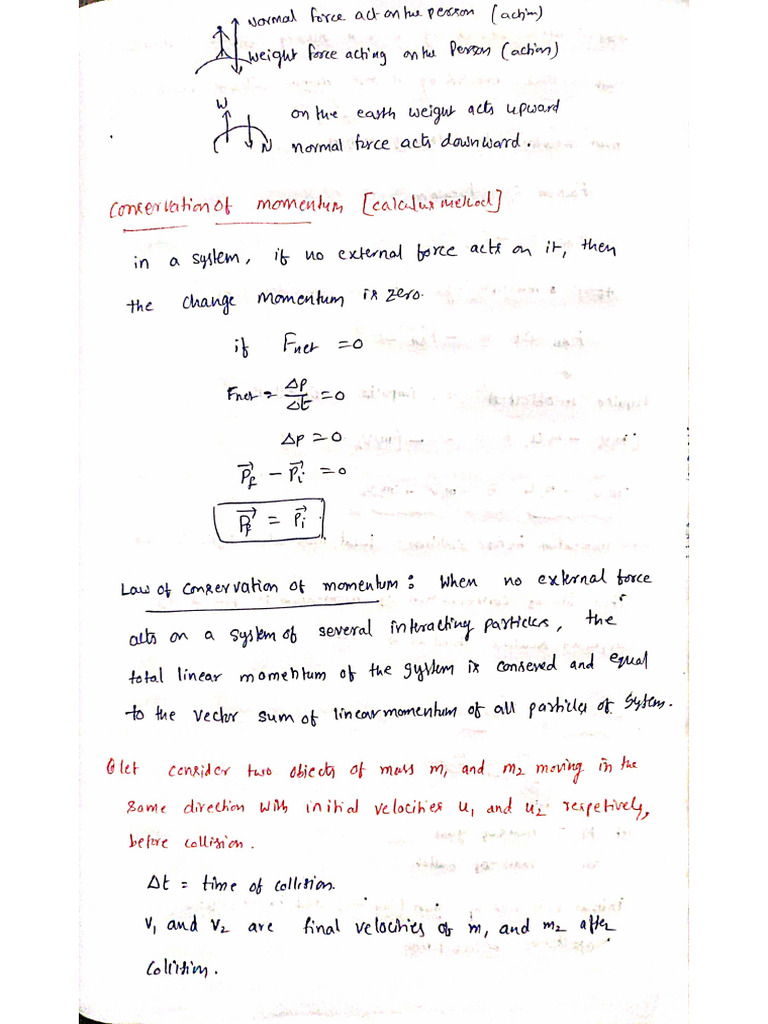 Normal force act on the person (action)
Weight force acting on the Person (action)
W
on the earth weight acts upward
N
normal force acts downward.
Conservation of momentum [calculus method]
in a system, if no external force acts on it, then
the change momentum is zero.
if Fnet = 0
Fnet = Δp/Δt = 0
Δp = 0
P⃗f - P⃗i = 0
P⃗f = P⃗i
Law of conservation of momentum: When no external force
acts on a system of several interacting particles, the
total linear momentum of the system is conseved and equal
to the vector sum of linear momentum of all particles of System.
let consider two objects of mass m₁ and m₂ moving in the
Same direction with initial velocities u₁ and u₂ respetively,
before collision.
Δt = time of collision.
V₁ and V₂ are final velocities of m₁ and m₂ after
Collision.